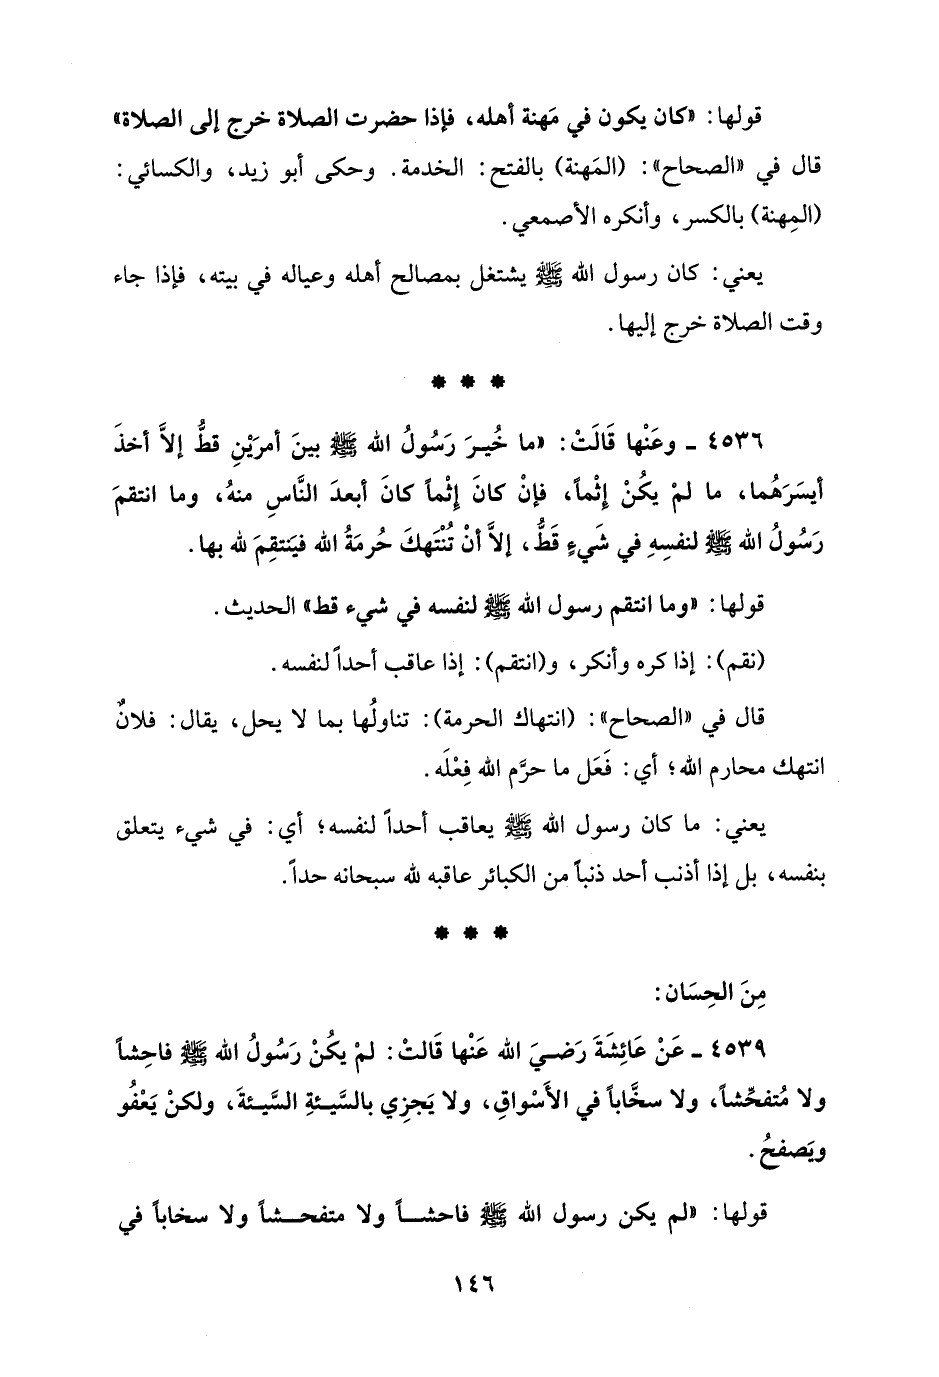 قولها: «كان يكون في مَهنة أهله، فإذا حضرت الصلاة خرج إلى الصلاة»
قال في «الصحاح»: (المَهنة) بالفتح: الخدمة. وحكى أبو زيد، والكسائي:
(المِهنة) بالكسر، وأنكره الأصمعي.
يعني: كان رسول الله ﷺ يشتغل بمصالح أهله وعياله في بيته، فإذا جاء
وقت الصلاة خرج إليها.
* * *
٤٥٣٦ ـ وعَنْها قَالَتْ: «ما خُيـرَ رَسُولُ الله ﷺ بينَ أمرَيْنِ قطُّ إلاَّ أخذَ
أيسَرَهُما، ما لمْ يكُنْ إثْماً، فإنْ كانَ إثْماً كانَ أبعدَ النَّاسِ منهُ، وما انتقمَ
رَسُولُ الله ﷺ لنفسِهِ في شَيءٍ قَطُّ، إلاَّ أنْ تُنْتَهكَ حُرمَةُ الله فيَنتقِمَ لله بها.
قولها: «وما انتقم رسول الله ﷺ لنفسه في شيء قط» الحديث.
(نقم): إذا كره وأنكر، و(انتقم): إذا عاقب أحداً لنفسه.
قال في «الصحاح»: (انتهاك الحرمة): تناولُها بما لا يحل، يقال: فلانٌ
انتهك محارم الله؛ أي: فَعَل ما حرَّم الله فِعْلَه.
يعني: ما كان رسول الله ﷺ يعاقب أحداً لنفسه؛ أي: في شيء يتعلق
بنفسه، بل إذا أذنب أحد ذنباً من الكبائر عاقبه لله سبحانه حداً.
* * *
مِنَ الحِسَان:
٤٥٣٩ ـ عَنْ عَائِشَةَ رَضيَ الله عَنْها قَالتْ: لمْ يكُنْ رَسُولُ الله ﷺ فاحِشاً
ولا مُتفحِّشاً، ولا سخَّاباً في الأَسْواقِ، ولا يَجزِي بالسَّيئةِ السَّيئةَ، ولكنْ يَعْفُو
ويَصفحُ.
قولها: «لم يكن رسول الله ﷺ فاحشـاً ولا متفحـشاً ولا سخاباً في
١٤٦